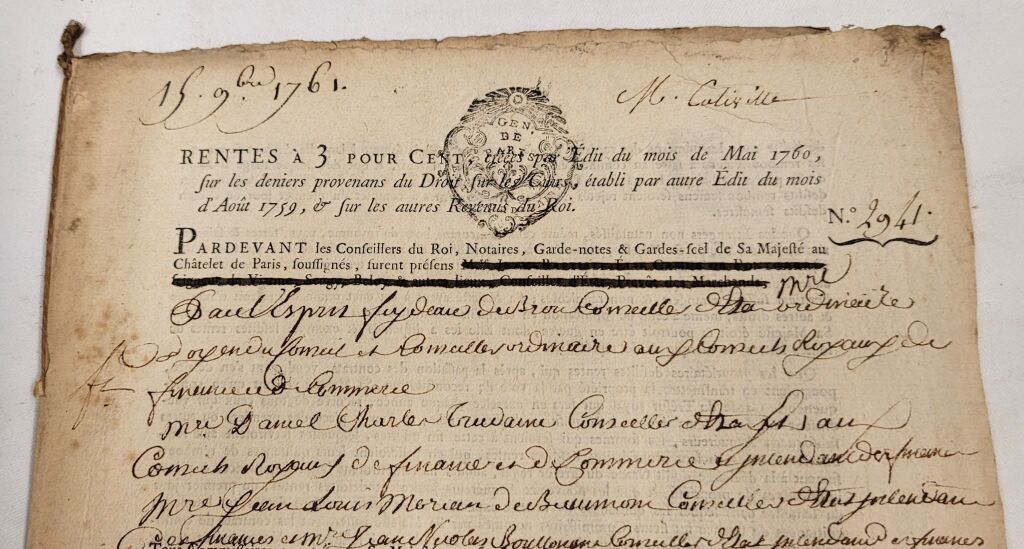 15. 9.bre 1761.
M. Coliville
GEN DE PARIS
RENTES À 3 POUR CENT, créées par Édit du mois de Mai 1760,
sur les deniers provenans du Droit sur les Cuirs, établi par autre Édit du mois
d'Août 1759, & sur les autres Revenus du Roi.
N.o 2941.
PARDEVANT les Conseillers du Roi, Notaires, Garde-notes & Gardes-scel de Sa Majesté au
Châtelet de Paris, soussignés, furent présens
Conseiller d'État, Prevôt des Marchands, Mre
Paul Esprit feydeau de Brou Conseiller d'Etat ordinaire
Doyen du Conseil et Conseiller ordinaire aux Conseils Royaux de
finance & de Commerce
Mre Daniel Charles Trudaine Conseiller d'Etat & aux
Conseils Royaux de finance et de Commerce & Intendant des finances
Mre Jean Louis Moreau de Beaumont Conseiller d'Etat Intendant
des finances et Mre Jean Nicolas Boullongne Conseiller d'Etat Intendant des finances